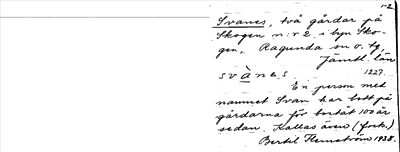 1-2
Svanes, två gårdar på
Skogen n:r 2 i byn Sko-
gen, Ragunda sn o. tg,
Jämtl. län
svànes 1227.
En person med
namnet Svan har bott på
gårdarna för bortåt 100 år
sedan. Kallas även (forts.)
Bertil Flemström 1938.